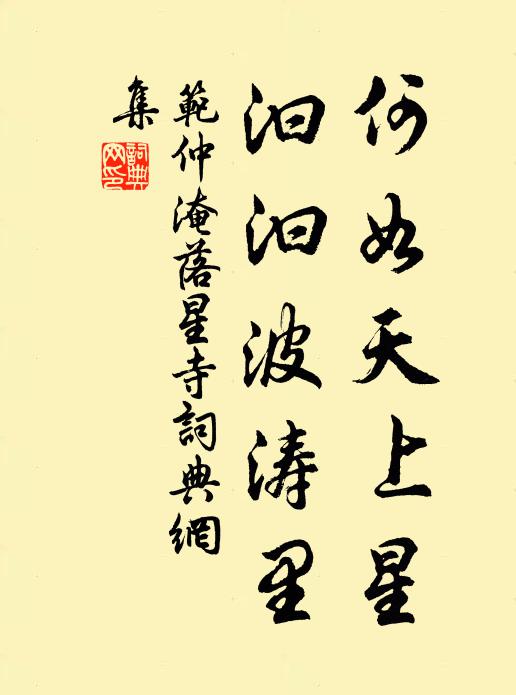 何如天上星
汩汩波涛里
範仲淹落星寺詞典網
集
詞典
网印